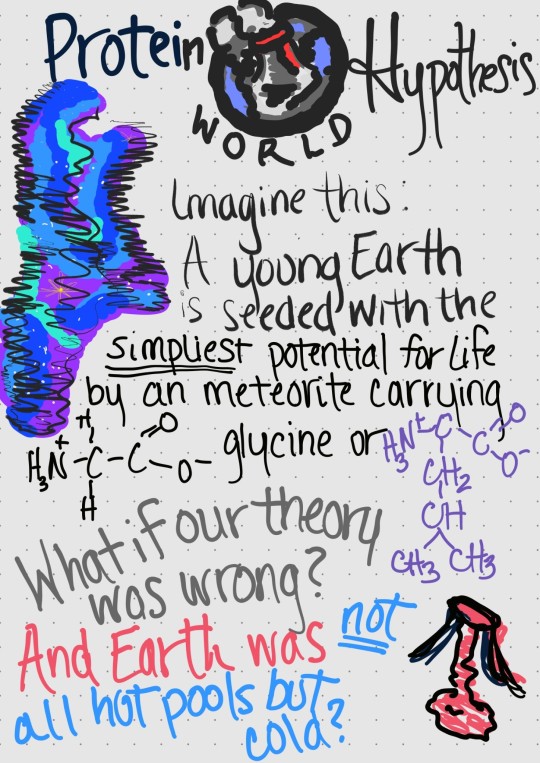 Protein Hypothesis
WORLD
Imagine this:
A young Earth
is seeded with the
simpliest potential for life
by an meteorite carrying
H
H₃N⁺-C-C=O glycine or H₃N⁺ C C=O
O⁻ O⁻
H CH₂
CH
CH₃ CH₃
What if our theory
was wrong?
And Earth was not
all hot pools but
cold?